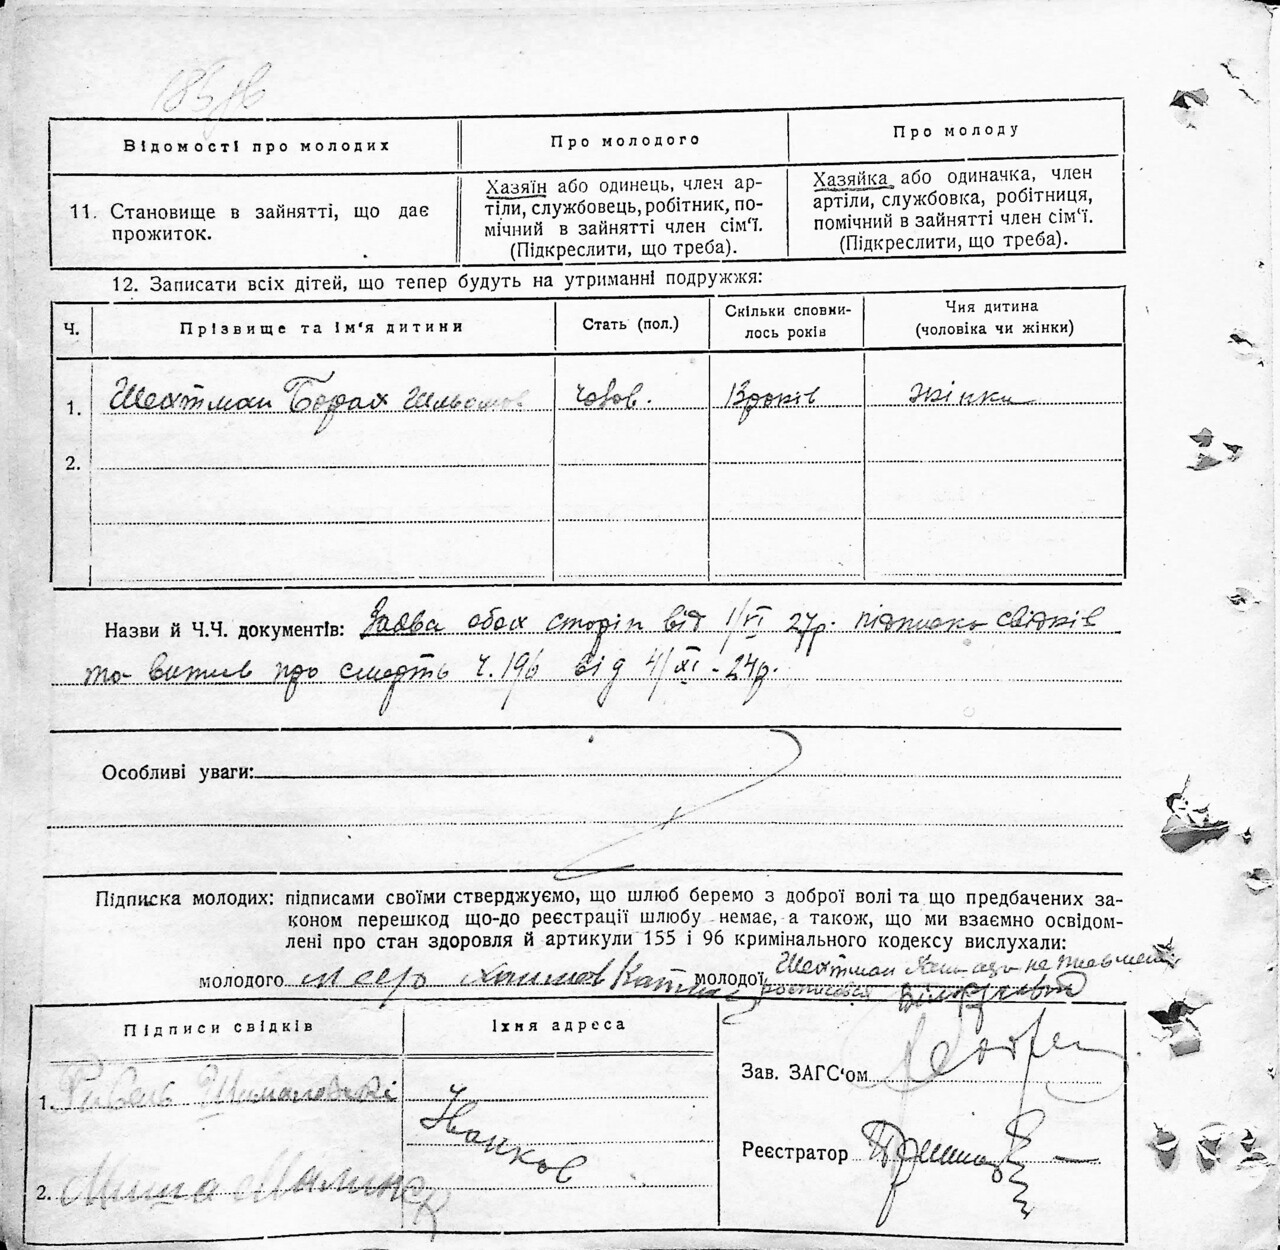 Відомості про молодих
Про молодого
Про молоду
11. Становище в зайнятті, що дає
прожиток.
Хазяїн або одинець, член ар-
тіли, службовець, робітник, по-
мічний в зайнятті член сім'ї.
(Підкреслити, що треба).
Хазяйка або одиначка, член
артіли, службовка, робітниця,
помічний в зайнятті член сім'ї.
(Підкреслити, що треба).
12. Записати всіх дітей, що тепер будуть на утриманні подружжя:
Ч.
Прізвище та ім'я дитини
Стать (пол.)
Скільки сповни-
лось років
Чия дитина
(чоловіка чи жінки)
1. Шехтман Борах чолов. 13 років жінки
2.
Назви й Ч.Ч. документів: Заява обох сторін від 1/VI 27р. підписка свідків
та витяг про смерть ч. 196 від 4/XI - 24р.
Особливі уваги:
Підписка молодих: підписами своїми стверджуємо, що шлюб беремо з доброї волі та що предбачених за-
коном перешкод що-до реєстрації шлюбу немає, а також, що ми взаємно освідом-
лені про стан здоровля й артикули 155 і 96 кримінального кодексу вислухали:
молодого молодої Шехтман
Підписи свідків
Їхня адреса
1.
Іванков
2. Миша
Зав. ЗАГС'ом
Реєстратор